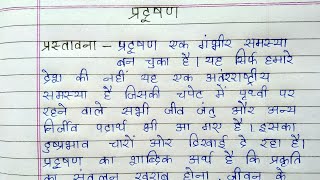 प्रदूषण
प्रस्तावना – प्रदूषण एक गंभीर समस्या
बन चुका है। यह सिर्फ हमारे
देश की नहीं यह एक अंतरराष्ट्रीय
समस्या है जिसकी चपेट में पृथ्वी पर
रहने वाले सभी जीव जंतु और अन्य
निर्जीव पदार्थ भी आ गए है। इसका
दुष्प्रभाव चारों ओर दिखाई दे रहा है।
प्रदूषण का शाब्दिक अर्थ है कि प्रकृति
का संतुलन खराब होना, जीवन के